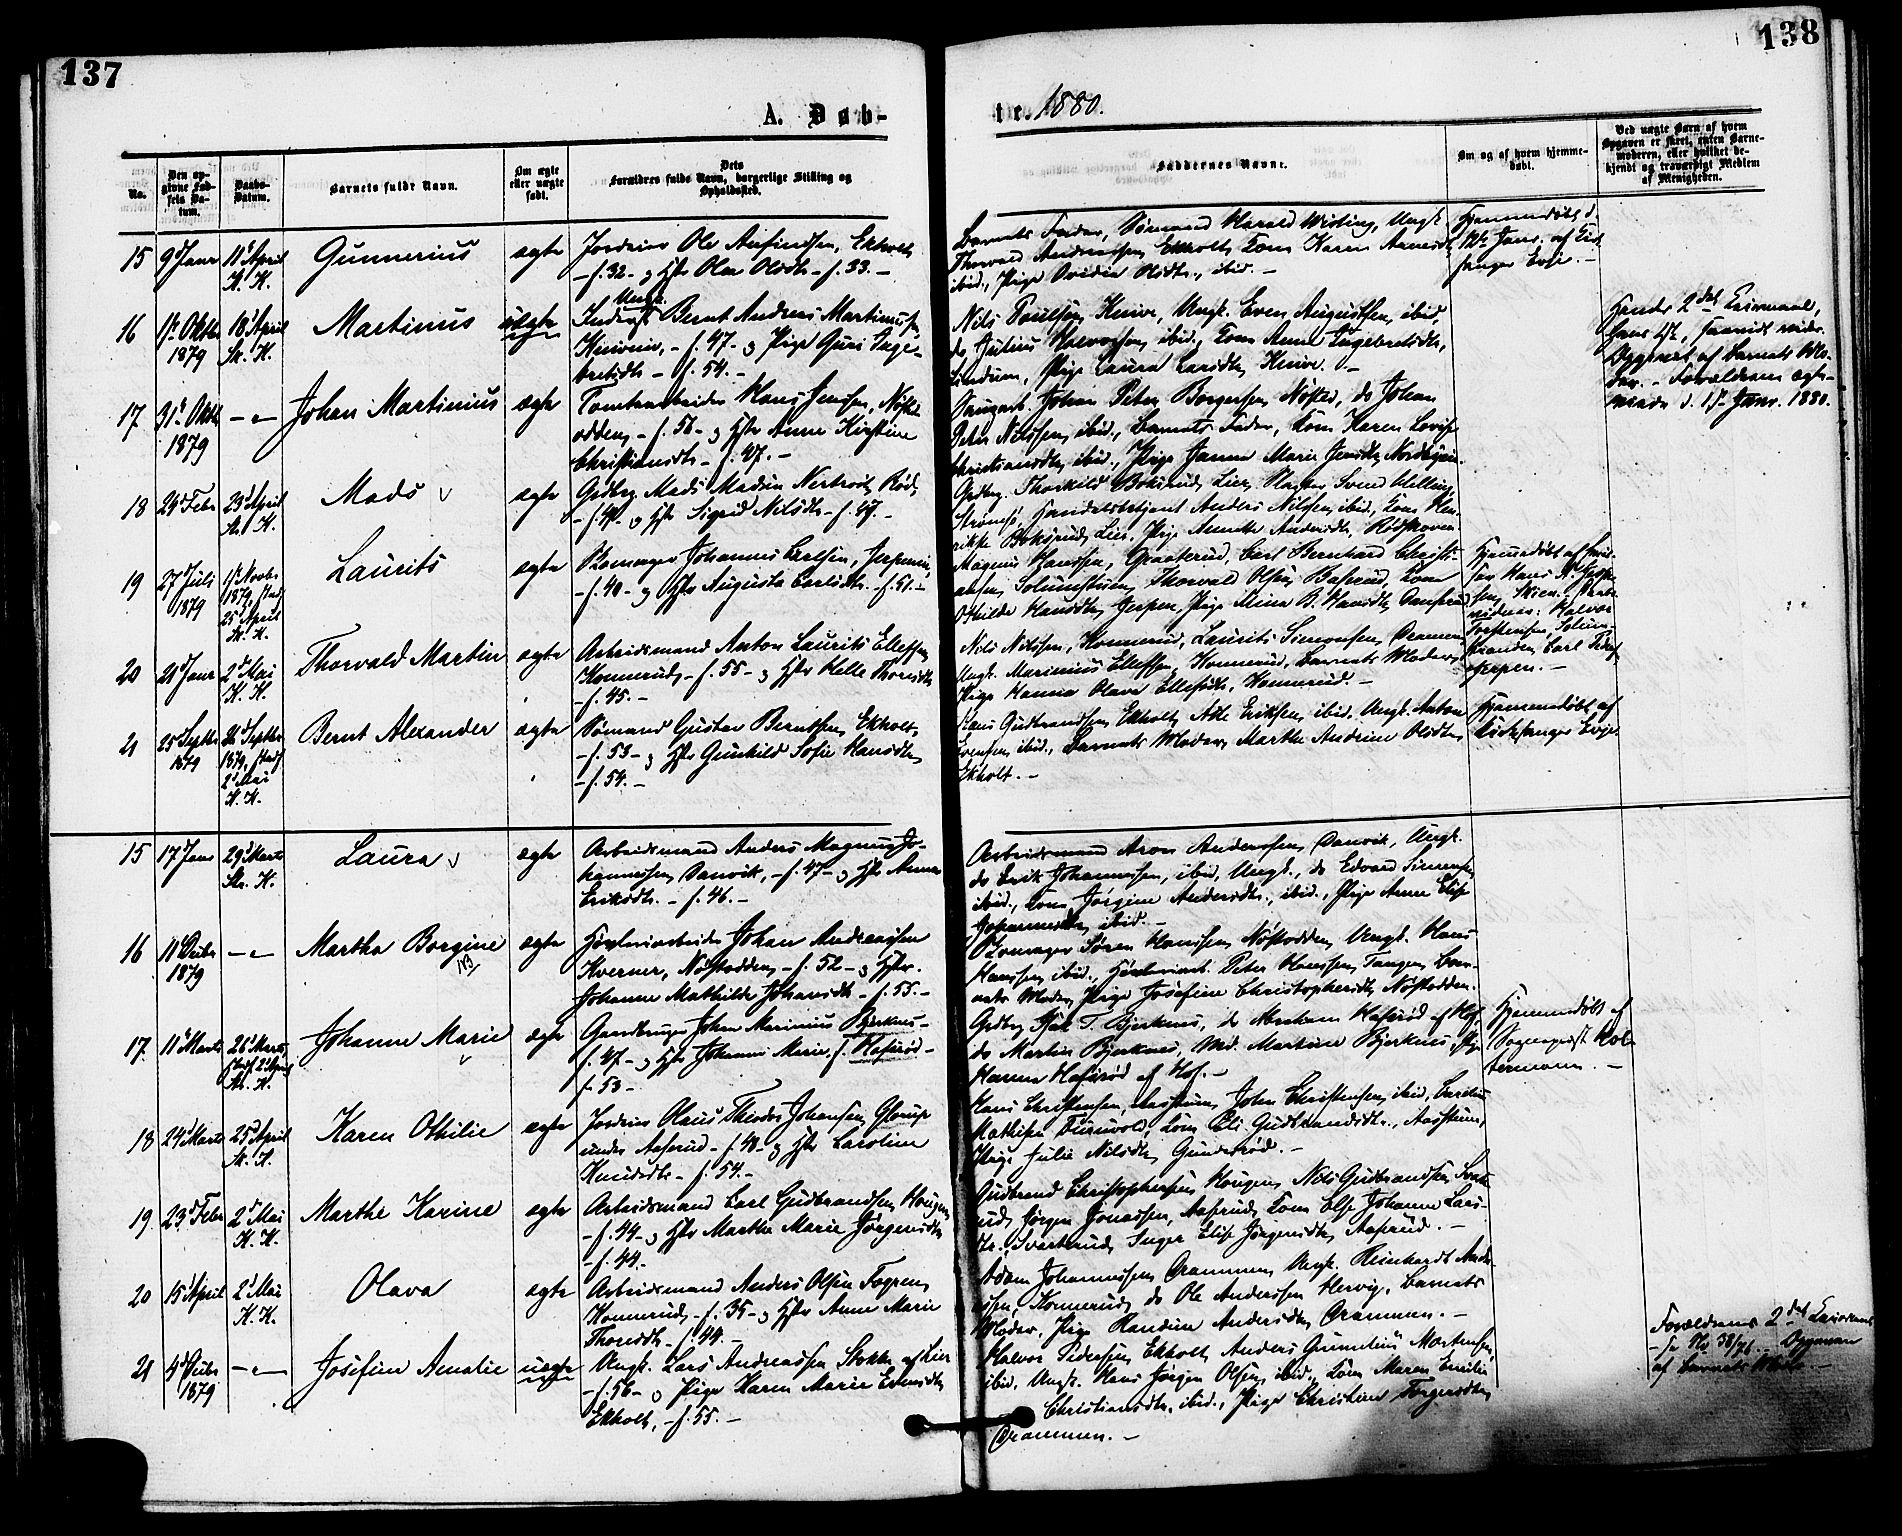 137
138
A. Døb-
te. 1880.
No.
Den op-
givne Fød-
sels Da-
tum.
Daabs-
Datum.
Barnets fulde Navn.
Om ægte
eller uægte
født.
Dets
Forældres fulde Navn, borgerlige Stilling og
Opholdssted.
Faddernes Navne.
Om og af hvem hjemme-
døbt.
Ved uægte Barn af hvem
Opgaven er skeet, enten Barne-
moderen, eller hvilket be-
kjendt og troværdigt Medlem
af Menigheden.
15 9d Janr 11te April K. K. Gunnerius ægte Jordeier Ole Anfindsen, Ekholt,
- f. 32 - og Hstr Olea Olsdtr - f. 33. -
Barnets Fader, Sømand Harald Wisting, Ungk.
Thorvald Andersen Ekholt, Kone Karen
ibid., Pige Ovidia Olsdtr., ibid. -
Hjemmedøbt d.
Janr. af Kirke-
sanger Evje. -
16 Oktbr 1879 18d April St. K. Martinius uægte
Ungk.
Bernt Andreas Martinusen
- f. 47 - og Pige Guri Inge-
bretsdtr - f. 54. -
Nils Poulsen, Knive, Ungk. Even Augustsen, ibid,
do Julius Halvorsen, ibid., Kone Anne Ingebretsdtr,
Pige Laura Larsdtr, Knive. -
2det Leiermaal,
Opgivet af Barnets Mo-
der. - Forældrene ægte-
Janr. 1880.
17 31te Oktbr 1879 - " - Johan Martinius ægte Tomtearbeider Hans Jensen, Nøsted-
odden, - f. 56 - og Hstr Anne Kirstine
Christiansdtr - f. 47. -
Johan Peter Borgersen, Nøsted, do Johan
Peter Nilssen, ibid., Barnets Fader, Kone Karen Lovise
Christiansdtr, ibid., Pige Janna Marie Jensdtr,
18 24d Febr 23d April St. K. Mads ægte Gbrg. Mads Madsen Røds,
- og Hstr Sigrid Nilsdtr - f. 47. -
Gbrg. Thorkild Lier, Svend
Strømsø, Handelsbetjent Anders Nilsen, ibid., Kone Hen-
rikke Lier, Pige Annette Andersdtr,
19 27d Juli 1879 Novbr 1879, stadf. 25d April St. K. Laurits ægte Johannes Carlsen,
- f. 40 - og Hstr Augusta Carlsdtr. - f. 51. -
Magnus Hanssen, Graaterud, Carl Bernhard Christi-
ansen, Thorvald Olsen, Kone
Othilde Hansdtr, Gjerpen, Pige Mina B. Hansdtr,
Hjemmedøbt af
Hans
Skien.
Halvor
Torstensen,
Carl
Gjerpen. -
20 21d Janr 2d Mai K. K. Thorvald Martin ægte Arbeidsmand Anton Laurits Ellefsen,
Konnerud, - f. 55 - og Hstr Helle Thorsdtr
- f. 45. -
Nils Nilssen, Konnerud, Laurits Simonsen, Drammen,
Ungk. Marinius Ellefsen, Konnerud, Barnets Moder,
Pige Hanna Olava Ellefsdtr., Konnerud. -
21 25d Septbr 1879 Septbr 1879, stadf. 2d Mai K. K. Bernt Alexander ægte Sømand Gustav Berntsen, Ekholt,
- f. 53 - og Hstr Gunhild Sofie Hansdtr,
- f. 54. -
Hans Gudbrandsen, Ekholt, Atle Eriksen, ibid. Ungk. Anton
Evensen, ibid., Barnets Moder, Marthe Andrine Olsdtr,
Ekholt. -
Hjemmedøbt af
Kirkesanger Evje.
15 17d Janr 29d Marts St. K. Laura ægte Arbeidsmand Anders Magnus Jo-
hannesen, Danvik, - f. 47 - og Hstr Anne
Eriksdtr. - f. 46. -
Arbeidsmand Aron Andersen, Danvik, Ungk.
do Erik Johannesen, ibid, Ungk., do Edvard Simensen,
ibid., Kone Jørgine Andersdtr., ibid., Pige Anne Elise
Johannesdtr, ibid. -
16 11te Decbr 1879 - " - Martha Borgine ægte Høvleriarbeider Johan Andreassen
Kverner, Nøstodden, - f. 52 - og Hstr.
Johanne Mathilde Johansdtr. - f. 55. -
Søren Hanssen, Nøstodden, Ungk. Hans
Hanssen, ibid., Høvleriarb. Peter Hanssen, Tangen, Bar-
nets Moder, Pige Josefine Christophersdtr, Nøstodden.
17 11te Marts 26d Marts, stadf 2d April St. K. Johanne Marie ægte Gaardbruger Johan Marinius Bjerknes -
f. 47 - og Hstr Johanne Marie, f. Hafsrød -
f. 53 -
Gbrg. Isak T. Bjerknes, do Abraham Hafsrød af Hof,
do Martin Bjerknes, Md. Martine Bjerknes, Pige
Hanna Hafsrød af Hof. -
Hjemmedøbt af
Sogneprest Hol-
termann. -
18 24d Marts 25d April St. K. Karen Othilie ægte Jordeier Olaus Theodor Johansen, Glorup
under Aaserud - f. 48 - og Hstr Caroline
Knudsdtr - f. 54. -
Hans Christensen, Aasstuen, John Christensen, ibid,
Mathisen Kone Eli Gudbrandsdtr., Aasstuen,
Pige Julie Nilsdtr, Gunderød. -
19 23d Febr 2d Mai K. K. Marthe Karine ægte Arbeidsmand Carl Gudbrandsen, Hougen,
- f. 44 - og Hstr Marthe Marie Jørgensdtr
- f. 44. -
Gudbrand Christophersen, Hougen, Nils Gudbrandsen, Svart-
rud, Jørgen Jonassen, Aaserud, Kone Else Johanne Lars-
dtr., Svartrud, Inger Elise Jørgensdtr, Aaserud. -
20 15d April 2d Mai K. K. Olava ægte Arbeidsmand Anders Olsen
Konnerud, - f. 35 - og Hstr Anne Marie
Thorsdtr. - f. 44. -
Adam Johannessen, Drammen, Ungk. Reinhardt Andr-
sen, Konnerud, do Ole Anderssen Barnets
Moder, Pige Randine Andersdtr, Drammen. -
21 4d Decbr 1879 - " - Josefine Amalie uægte Ungk. Lars Andreassen Stokke af Lier
- f. 56 - og Pige Karen Marie Edvardsdtr,
Ekholt, - f. 55. -
Halvor Pedersen, Ekholt, Anders Gunnelius Mortensen,
ibid, Ungk. Hans Jørgen Olsen, ibid., Kone Maren Emilie
Christiansdtr, ibid., Pige Christine Torgersdtr,
Drammen. -
Forældrenes 2det Leiermaal
- se No 38/76. - Opgivet
af Barnets